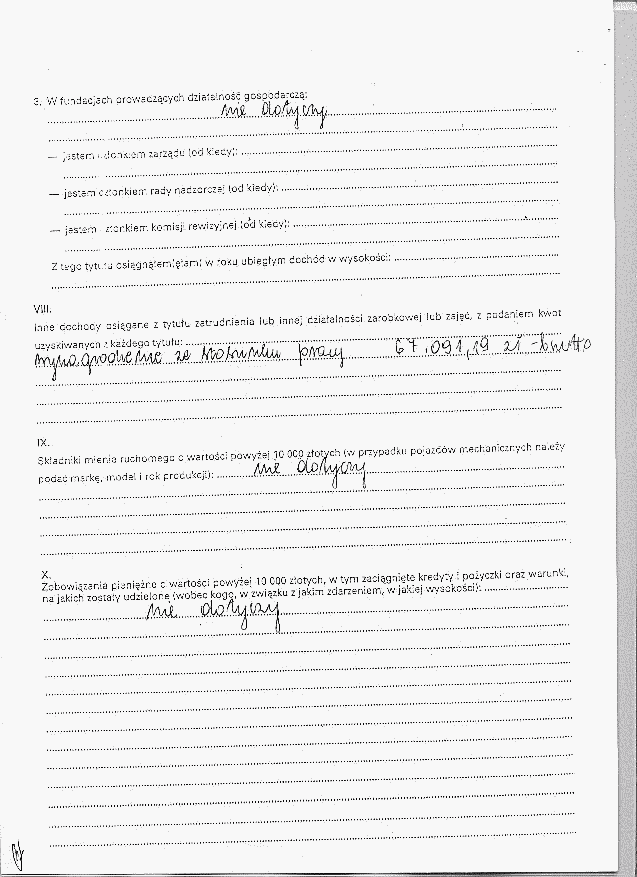 3. W fundacjach prowadzących działalność gospodarczą:
nie dotyczy
— jestem członkiem zarządu (od kiedy):
— jestem członkiem rady nadzorczej (od kiedy):
— jestem członkiem komisji rewizyjnej (od kiedy):
Z tego tytułu osiągnąłem(ęłam) w roku ubiegłym dochód w wysokości:
VIII.
Inne dochody osiągane z tytułu zatrudnienia lub innej działalności zarobkowej lub zajęć, z podaniem kwot
uzyskiwanych z każdego tytułu:
wynagrodzenie ze stosunku pracy 67.091,19 zł - brutto
IX.
Składniki mienia ruchomego o wartości powyżej 10 000 złotych (w przypadku pojazdów mechanicznych należy
podać markę, model i rok produkcji): nie dotyczy
X.
Zobowiązania pieniężne o wartości powyżej 10 000 złotych, w tym zaciągnięte kredyty i pożyczki oraz warunki,
na jakich zostały udzielone (wobec kogo, w związku z jakim zdarzeniem, w jakiej wysokości):
nie dotyczy